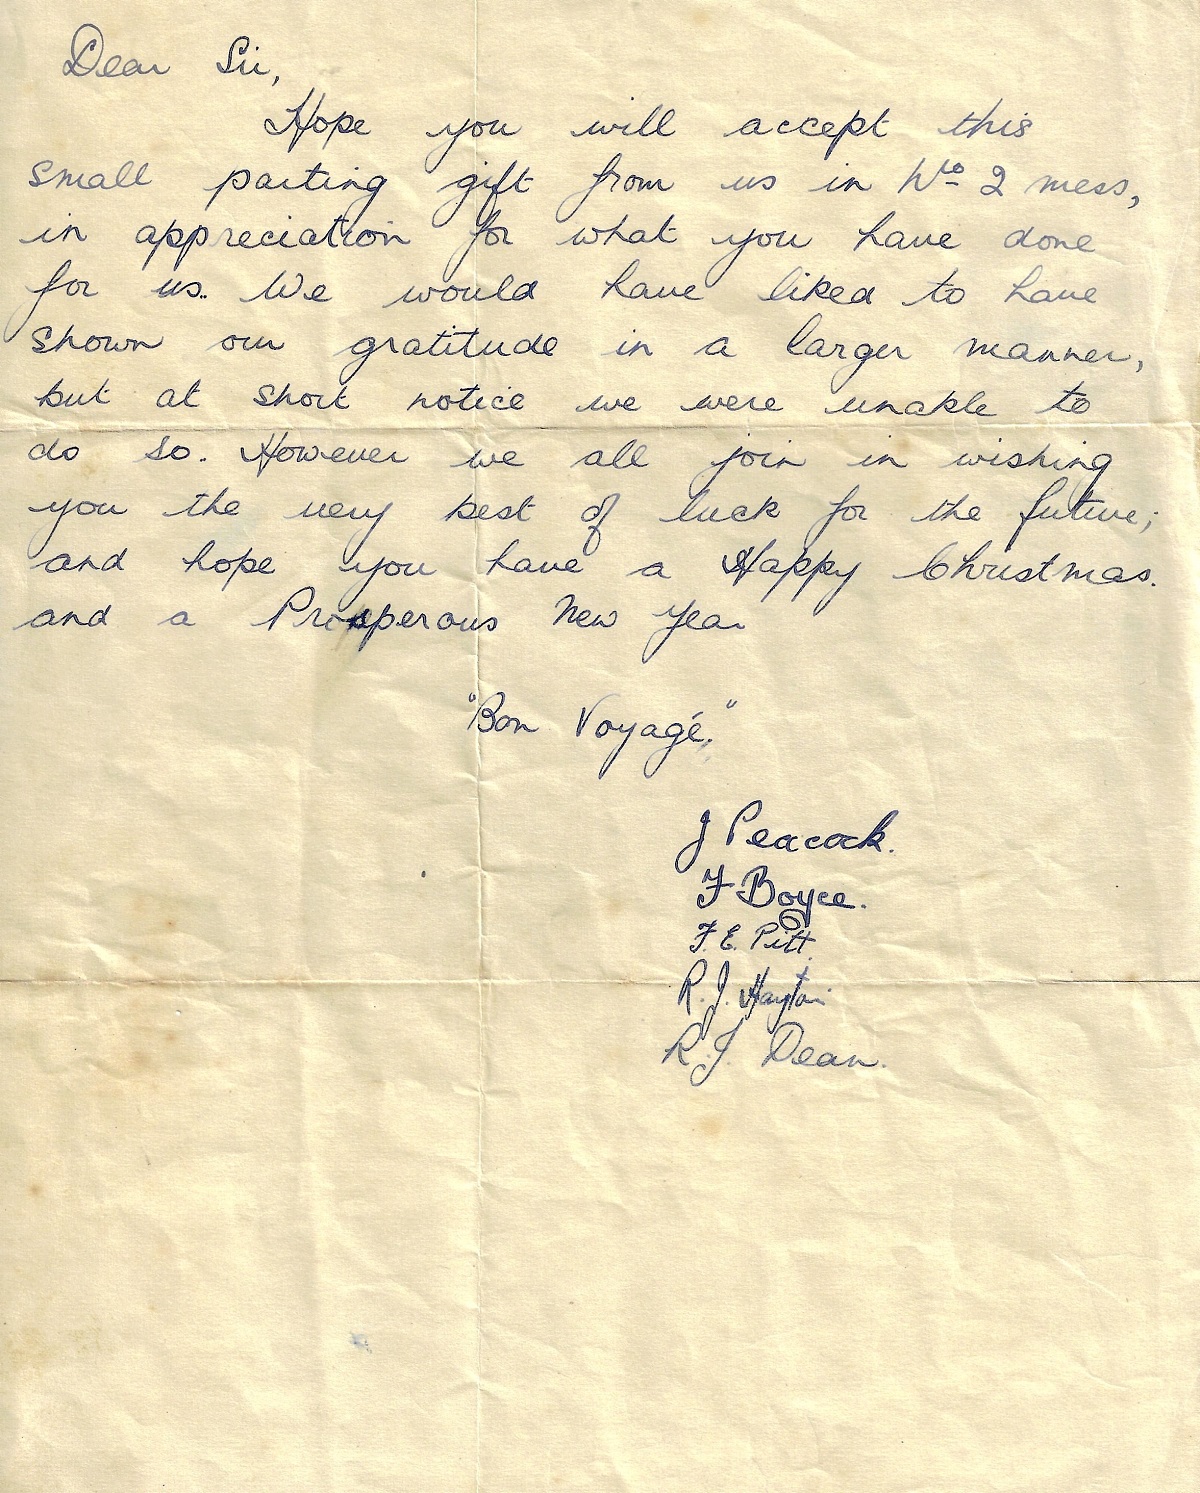 Dear Sir,
Hope you will accept this
small parting gift from us in No 2 mess,
in appreciation for what you have done
for us. We would have liked to have
shown our gratitude in a larger manner,
but at short notice we were unable to
do so. However we all join in wishing
you the very best of luck for the future;
and hope you have a Happy Christmas.
and a Prosperous New Year
"Bon Voyagé."
J Peacock.
F Boyce.
F. E. Pitt.
R. J.
R. J. Dean.